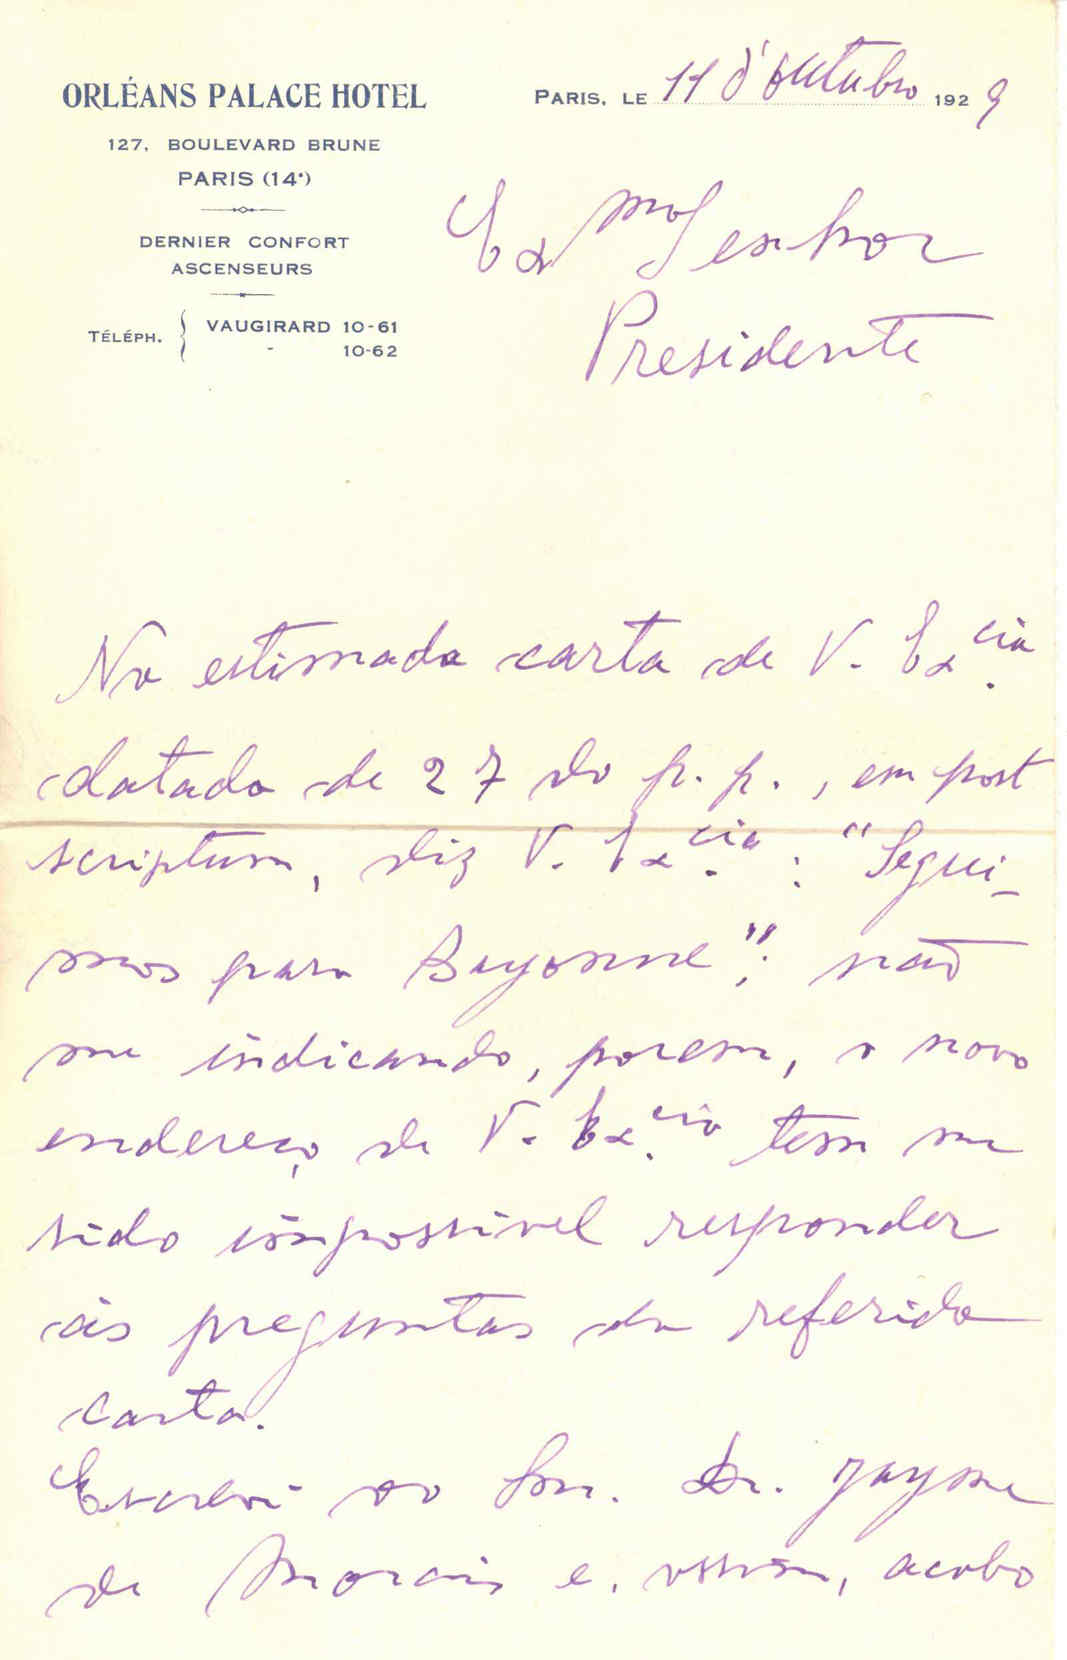 ORLÉANS PALACE HOTEL
127, BOULEVARD BRUNE
PARIS (14e)
DERNIER CONFORT
ASCENSEURS
TÉLÉPH. { VAUGIRARD 10-61
- 10-62
PARIS, LE 11 d'outubro 1929
Exmo Senhor
Presidente
Na estimada carta de V. Ex.cia
datada de 27 do p. p., em post
scriptum, diz V. Ex.cia: "Segui-
mos para Bayonne"; não
me indicando, porem, o novo
endereço de V. Ex.cia tem me
sido impossivel responder
ás preguntas da referida
carta.
Escrevi ao Snr. Dr. Jayme
de Morais e, assim, acabo